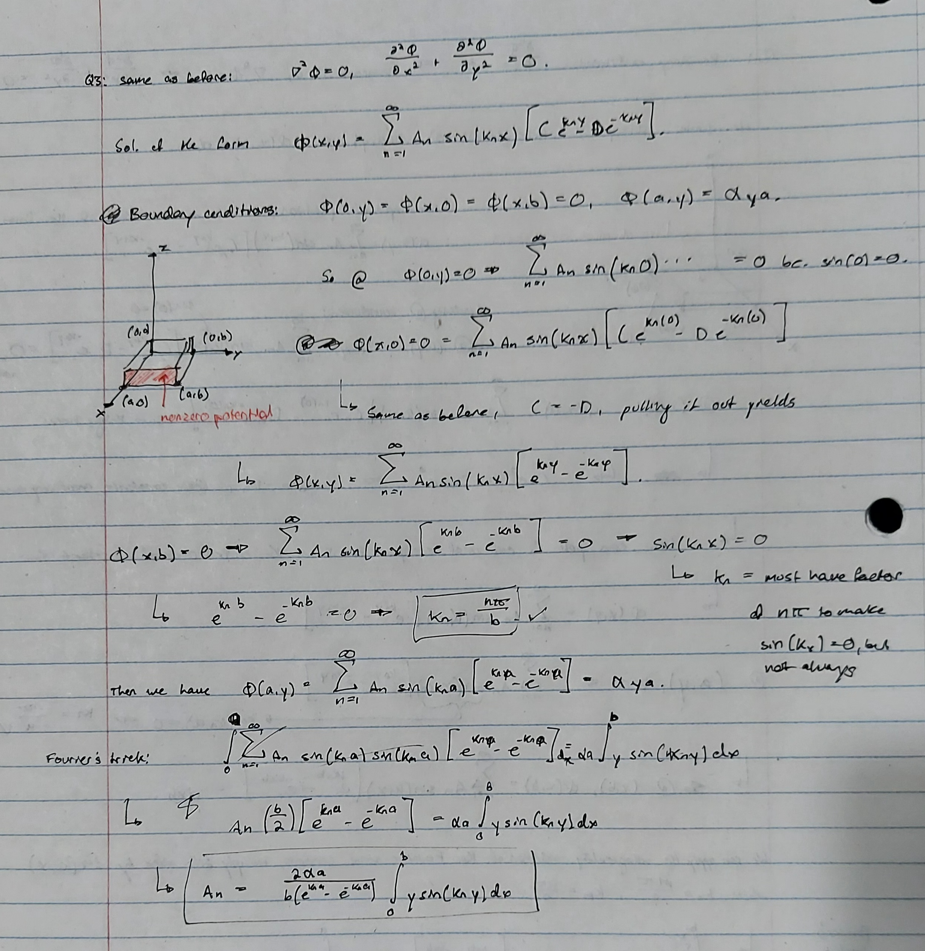 Q3: same as before: ∇²Φ = 0, ∂²Φ/∂x² + ∂²Φ/∂y² = 0.
Sol. of the form Φ(x,y) = ∑_{n=1}^{∞} An sin(knx) [C e^{kny} - D e^{-kny}].
Boundary conditions: Φ(0,y) = Φ(x,0) = Φ(x,b) = 0, Φ(a,y) = αya.
z
So @ Φ(0,y)=0 ⇒ ∑_{n=1}^{∞} An sin(kn0) ··· = 0 bc. sin(0)=0.
(0,0) (0,b) y
Φ(x,0)=0 = ∑_{n=1}^{∞} An sin(knx) [C e^{kn(0)} - D e^{-kn(0)}]
x (a,0) (a,b)
nonzero potential
↳ Same as before, C = -D, pulling it out yields
↳ Φ(x,y) = ∑_{n=1}^{∞} An sin(knx) [e^{kny} - e^{-kny}].
Φ(x,b) = 0 ⇒ ∑_{n=1}^{∞} An sin(knx) [e^{knb} - e^{-knb}] = 0 → sin(knx) = 0
↳ kn = must have factor
of nπ to make
sin(kx)=0, but
not always
↳ e^{knb} - e^{-knb} = 0 ⇒ kn = nπ/b ✓
Then we have Φ(a,y) = ∑_{n=1}^{∞} An sin(kna) [e^{kna} - e^{-kna}] = αya.
Fourier's trick: ∫_0 ∑_{n=1}^{∞} An sin(kna) sin(kma) [e^{kna} - e^{-kna}] dx = αa ∫^b y sin(kny) dx
↳ An (b/2) [e^{kna} - e^{-kna}] = αa ∫_0^B y sin(kny) dx
↳ An = 2αa / b(e^{kna} - e^{-kna}) ∫_0^b y sin(kny) dx